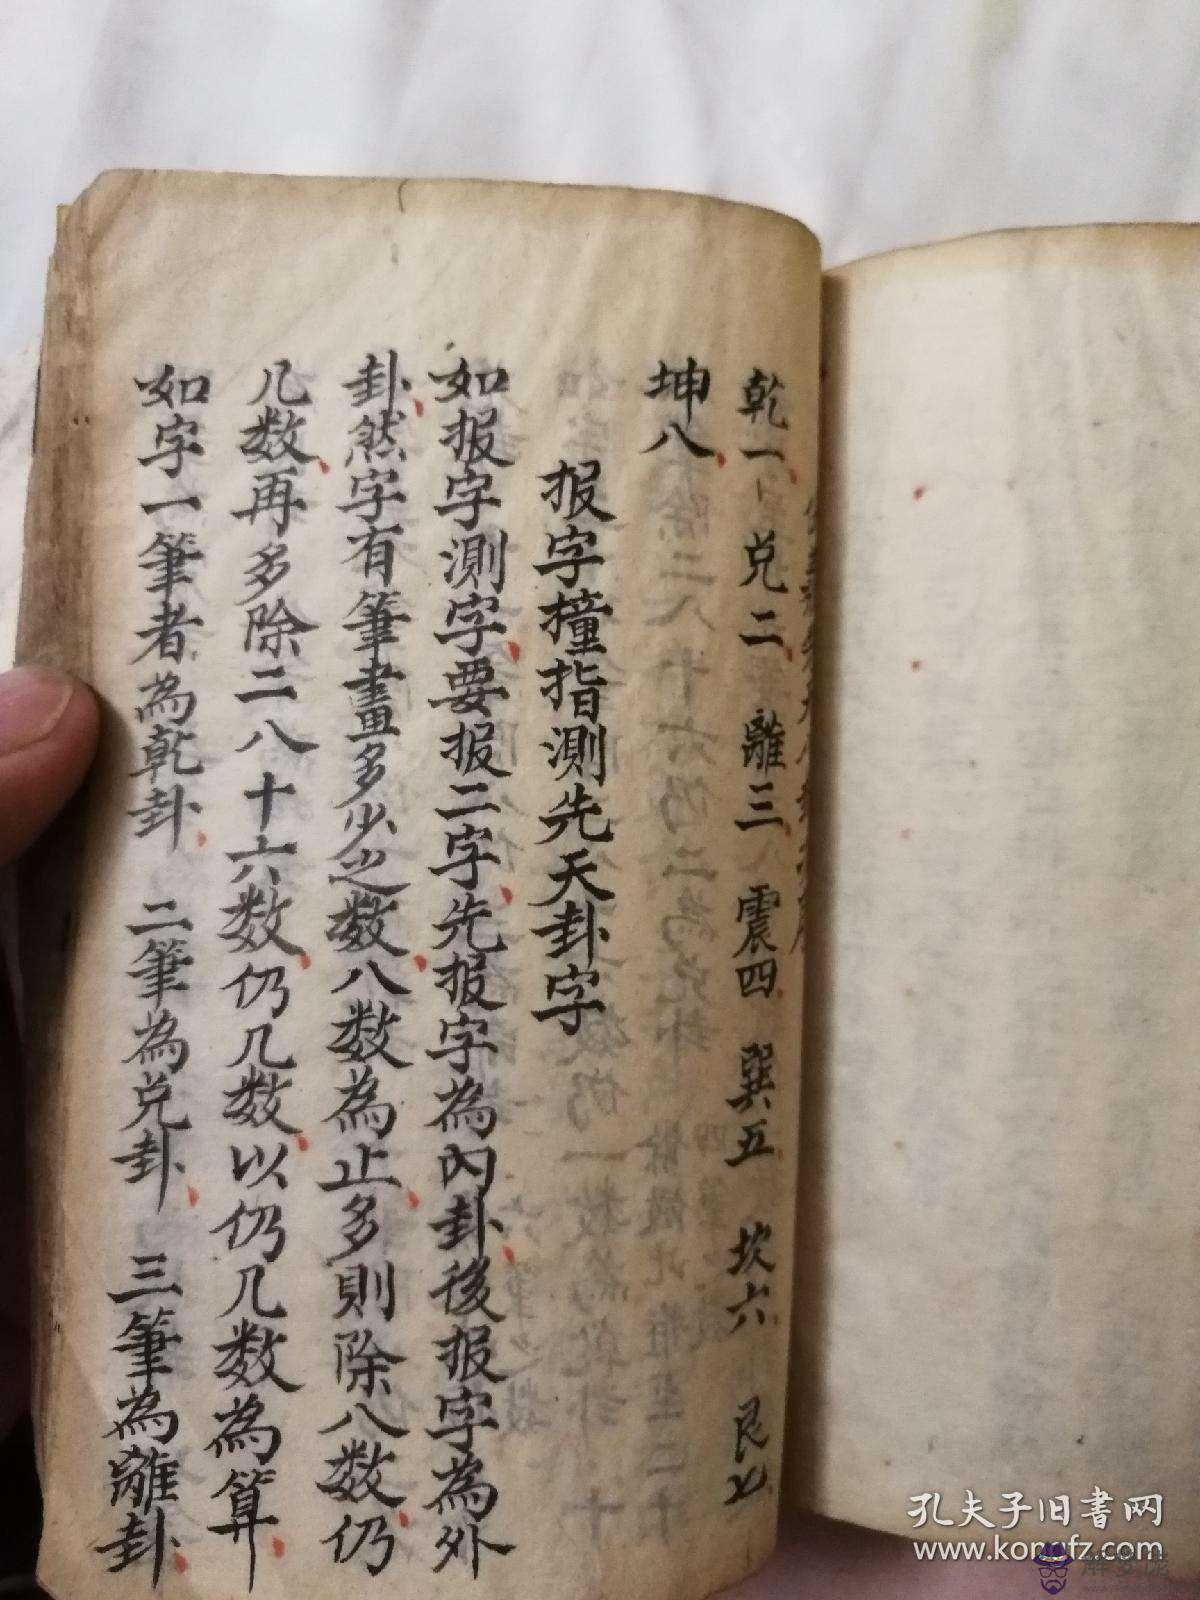 乾一 兑二 離三 震四 巽五 坎六 艮七
坤八
报字撞指測先天卦字
如报字測字要报二字先报字為內卦後报字為外
卦然字有筆畫多少之数八数為止多則除八数仍
几数再多除二八十六数仍几数以仍几数為算
如字一筆者為乾卦 二筆為兑卦 三筆為離卦
孔夫子旧书网
www.kongfz.com